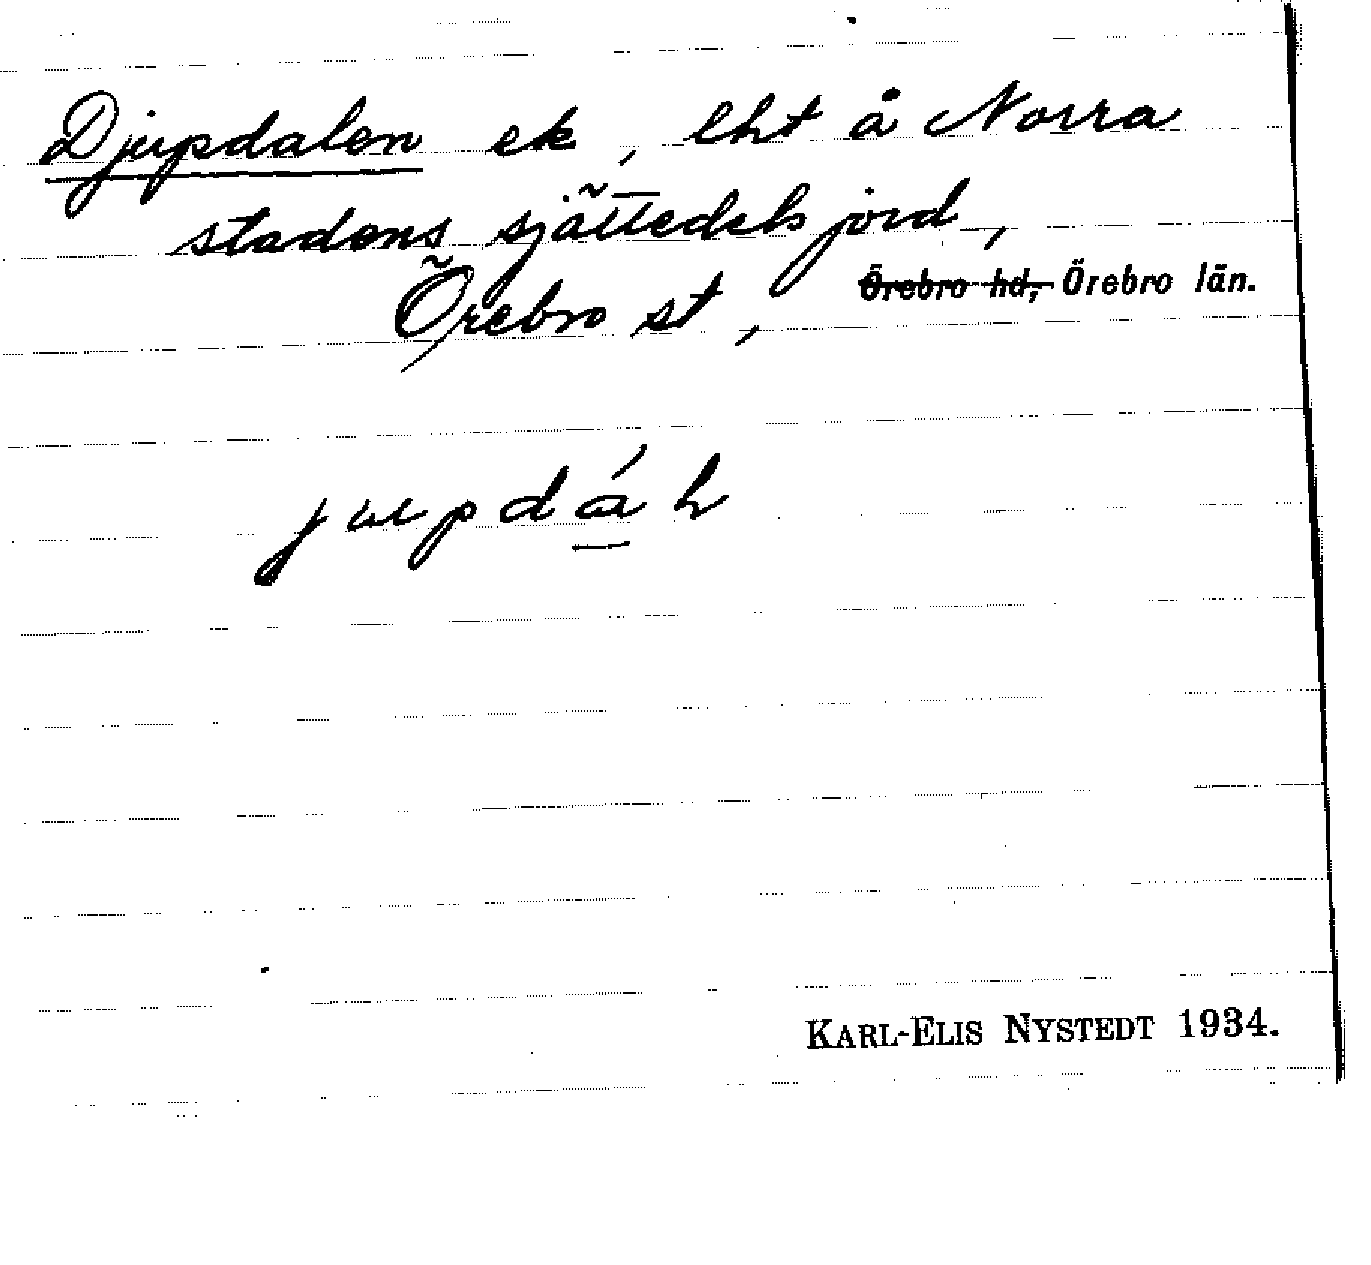 Djupdalen ek, lht å Norra
stadens sjättedels jord,
Örebro st, Örebro hd, Örebro län.
KARL-ELIS NYSTEDT 1934.